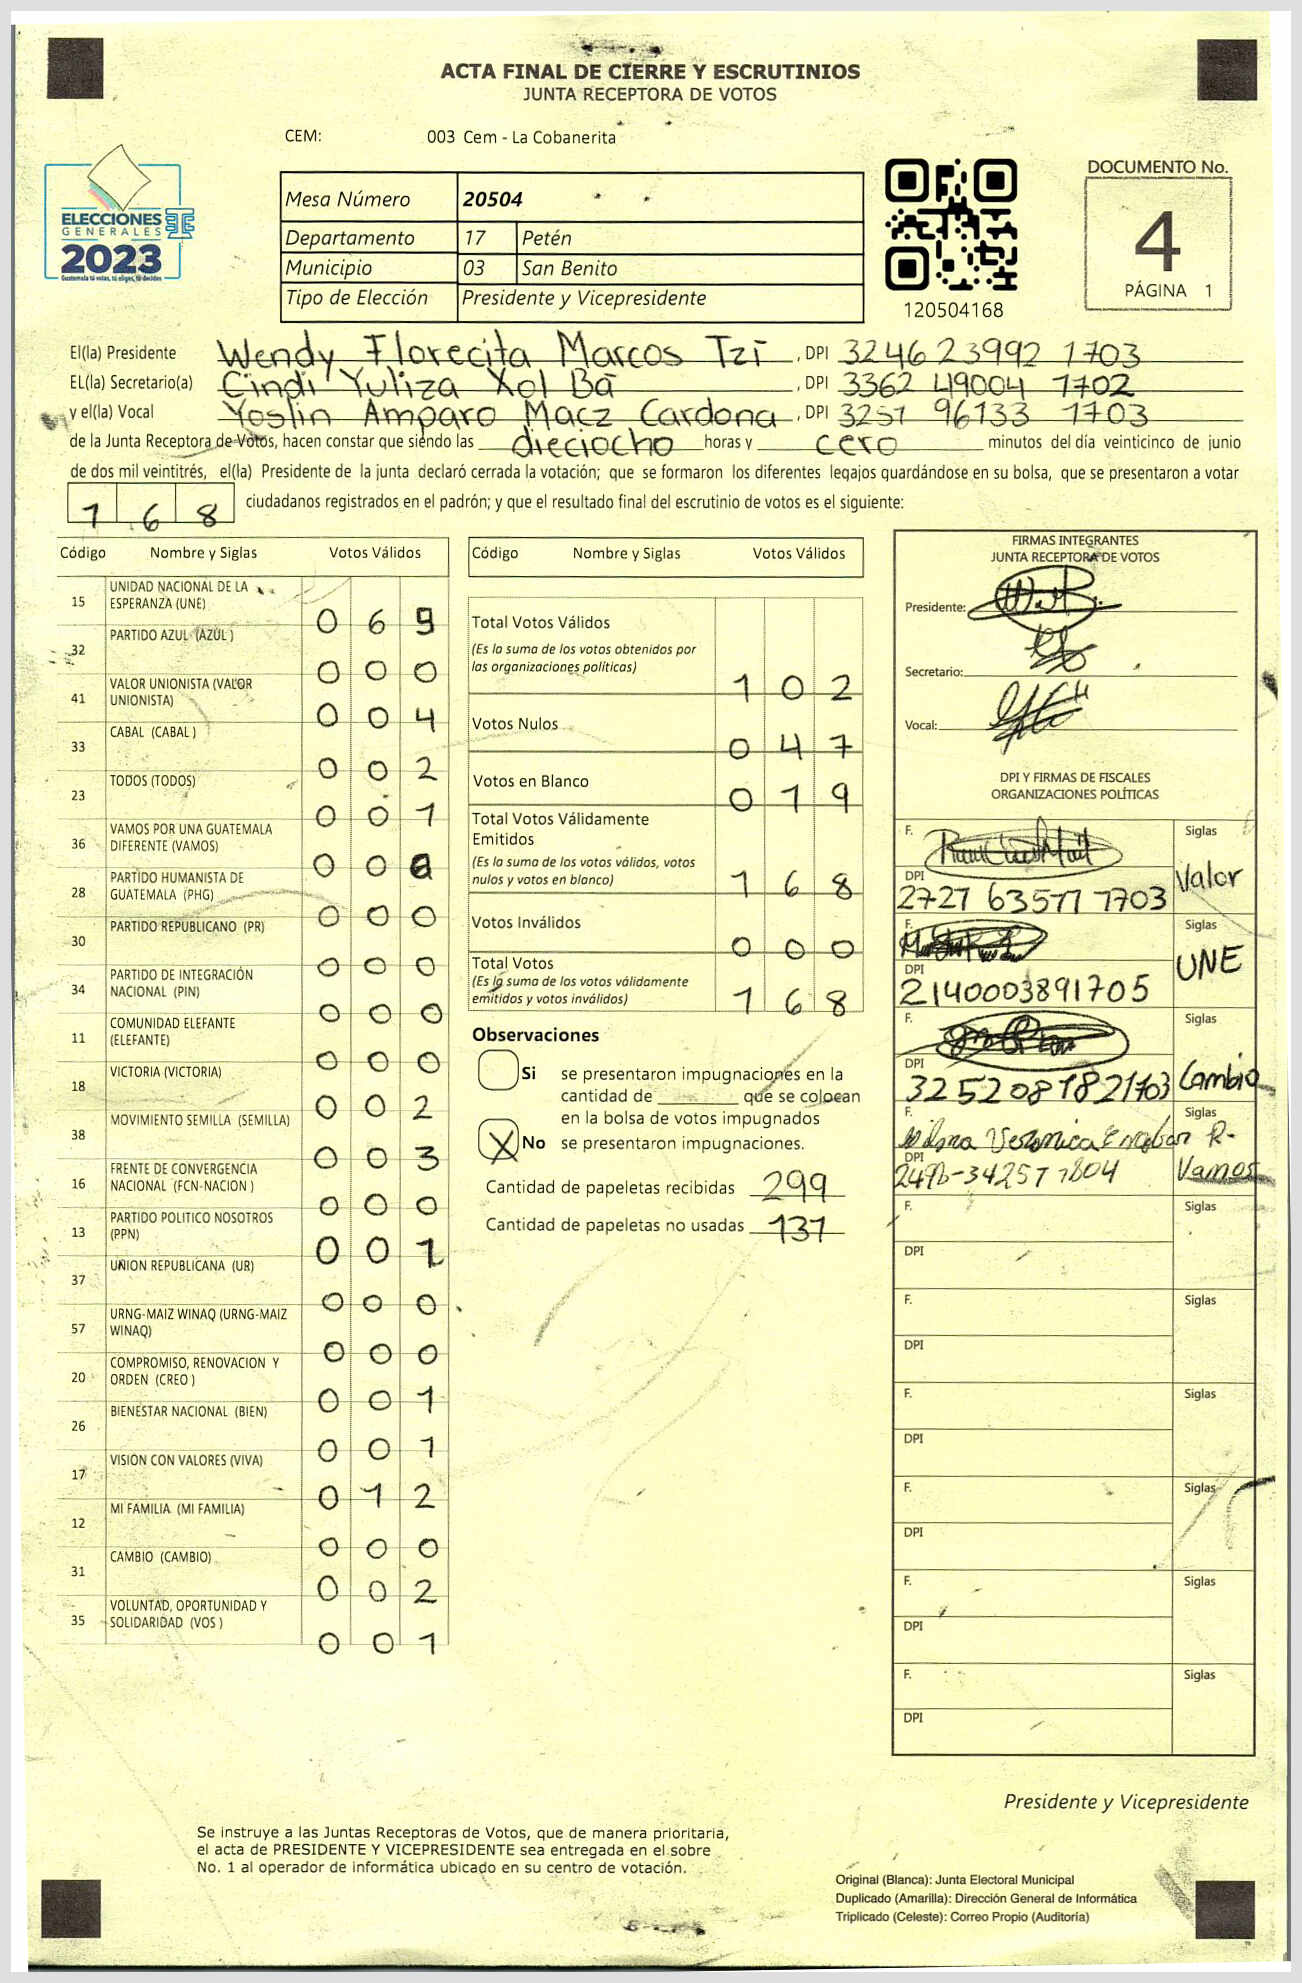 ACTA FINAL DE CIERRE Y ESCRUTINIOS
JUNTA RECEPTORA DE VOTOS
CEM: 003 Cem - La Cobanerita
ELECCIONES
GENERALES
2023
Guatemala tú votas, tú eliges, tú decides
Mesa Número 20504
Departamento 17 Petén
Municipio 03 San Benito
Tipo de Elección Presidente y Vicepresidente
120504168
DOCUMENTO No.
4
PÁGINA 1
El(la) Presidente Wendy Florecita Marcos Tzi, DPI 3246 23992 1703
EL(la) Secretario(a) Cindi Yuliza Xol Bá, DPI 3362 49004 1702
y el(la) Vocal Yoslin Amparo Macz Cardona, DPI 3251 96133 1703
de la Junta Receptora de Votos, hacen constar que siendo las dieciocho horas y cero minutos del día veinticinco de junio
de dos mil veintitrés, el(la) Presidente de la junta declaró cerrada la votación; que se formaron los diferentes legajos guardándose en su bolsa, que se presentaron a votar
168 ciudadanos registrados en el padrón; y que el resultado final del escrutinio de votos es el siguiente:
Código Nombre y Siglas Votos Válidos
15 UNIDAD NACIONAL DE LA
ESPERANZA (UNE) 0 6 9
32 PARTIDO AZUL (AZUL ) 0 0 0
41 VALOR UNIONISTA (VALOR
UNIONISTA) 0 0 4
33 CABAL (CABAL ) 0 0 2
23 TODOS (TODOS) 0 0 1
36 VAMOS POR UNA GUATEMALA
DIFERENTE (VAMOS) 0 0
28 PARTIDO HUMANISTA DE
GUATEMALA (PHG) 0 0 0
30 PARTIDO REPUBLICANO (PR) 0 0 0
34 PARTIDO DE INTEGRACIÓN
NACIONAL (PIN) 0 0 0
11 COMUNIDAD ELEFANTE
(ELEFANTE) 0 0 0
18 VICTORIA (VICTORIA) 0 0 2
38 MOVIMIENTO SEMILLA (SEMILLA) 0 0 3
16 FRENTE DE CONVERGENCIA
NACIONAL (FCN-NACION ) 0 0 0
13 PARTIDO POLITICO NOSOTROS
(PPN) 0 0 1
37 UNION REPUBLICANA (UR) 0 0 0
57 URNG-MAIZ WINAQ (URNG-MAIZ
WINAQ) 0 0 0
20 COMPROMISO, RENOVACION Y
ORDEN (CREO ) 0 0 1
26 BIENESTAR NACIONAL (BIEN) 0 0 1
17 VISION CON VALORES (VIVA) 0 1 2
12 MI FAMILIA (MI FAMILIA) 0 0 0
31 CAMBIO (CAMBIO) 0 0 2
35 VOLUNTAD, OPORTUNIDAD Y
SOLIDARIDAD (VOS ) 0 0 1
Código Nombre y Siglas Votos Válidos
Total Votos Válidos
(Es la suma de los votos obtenidos por
las organizaciones políticas) 1 0 2
Votos Nulos 0 4 7
Votos en Blanco 0 1 9
Total Votos Válidamente
Emitidos
(Es la suma de los votos válidos, votos
nulos y votos en blanco) 1 6 8
Votos Inválidos 0 0 0
Total Votos
(Es la suma de los votos válidamente
emitidos y votos inválidos) 1 6 8
Observaciones
Si se presentaron impugnaciones en la
cantidad de ________ que se colocan
en la bolsa de votos impugnados
X No se presentaron impugnaciones.
Cantidad de papeletas recibidas 299
Cantidad de papeletas no usadas 131
FIRMAS INTEGRANTES
JUNTA RECEPTORA DE VOTOS
Presidente:
Secretario:
Vocal:
DPI Y FIRMAS DE FISCALES
ORGANIZACIONES POLÍTICAS
F. Siglas
DPI Valor
2727 63577 1703
F. Siglas
DPI UNE
2140003891705
F. Siglas
DPI Cambio
3252081821703
F. Siglas
Veronica R.
DPI
34257 1804 Vamos
F. Siglas
DPI
F. Siglas
DPI
F. Siglas
DPI
F. Siglas
DPI
F. Siglas
DPI
F. Siglas
DPI
Presidente y Vicepresidente
Se instruye a las Juntas Receptoras de Votos, que de manera prioritaria,
el acta de PRESIDENTE Y VICEPRESIDENTE sea entregada en el sobre
No. 1 al operador de informática ubicado en su centro de votación.
Original (Blanca): Junta Electoral Municipal
Duplicado (Amarilla): Dirección General de Informática
Triplicado (Celeste): Correo Propio (Auditoría)